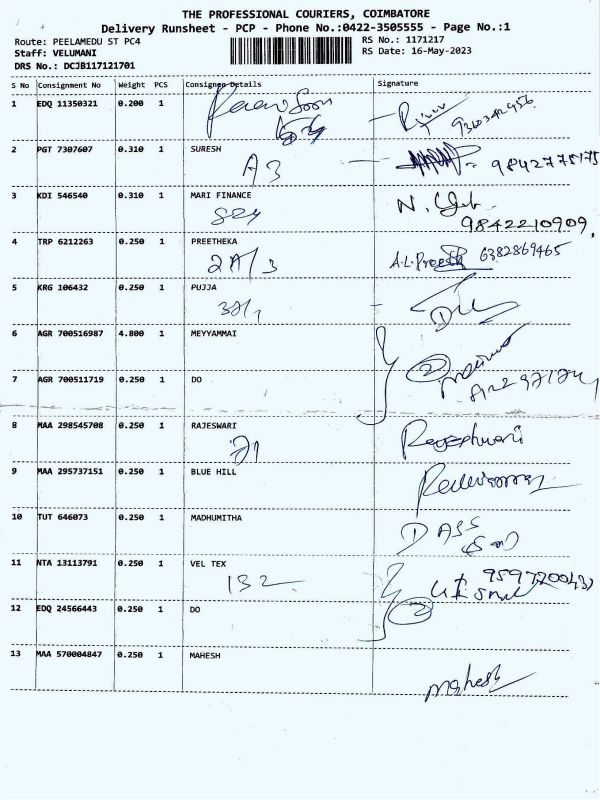 THE PROFESSIONAL COURIERS, COIMBATORE
Delivery Runsheet - PCP - Phone No.:0422-3505555 - Page No.:1
Route: PEELAMEDU ST PC4
Staff: VELUMANI
DRS No.: DCJB117121701
RS No.: 1171217
RS Date: 16-May-2023
S No Consignment No Weight PCS Consignee Details Signature
1 EDQ 11350321 0.200 1
2 PGT 7307607 0.310 1 SURESH
A3 9842775175
3 KDI 546540 0.310 1 MARI FINANCE
N.
9842210909,
4 TRP 6212263 0.250 1 PREETHEKA
2A/3 A.L.Preethi 6382869465
5 KRG 106432 0.250 1 PUJJA
6 AGR 700516987 4.800 1 MEYYAMMAI
2
7 AGR 700511719 0.250 1 DO
8 MAA 298545708 0.250 1 RAJESWARI
Rajeshwari
9 MAA 295737151 0.250 1 BLUE HILL
10 TUT 646073 0.250 1 MADHUMITHA
DASS
11 NTA 13113791 0.250 1 VEL TEX
132
12 EDQ 24566443 0.250 1 DO
2
13 MAA 570004847 0.250 1 MAHESH
mahesh